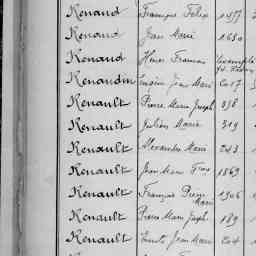 Renaud François Félix 1577
Renaud Jean Marie 1650
Renaud Henri François
Renaudin Eugène Jean Marie 2017
Renault Pierre Marie Joseph 338
Renault Julien Marie 319
Renault Alexandre Marie 243
Renault Jean Marie Frois 1869
Renault François Pierre Marie 1906
Renault Pierre Marie Joseph 189
Renault Jean Marie 204